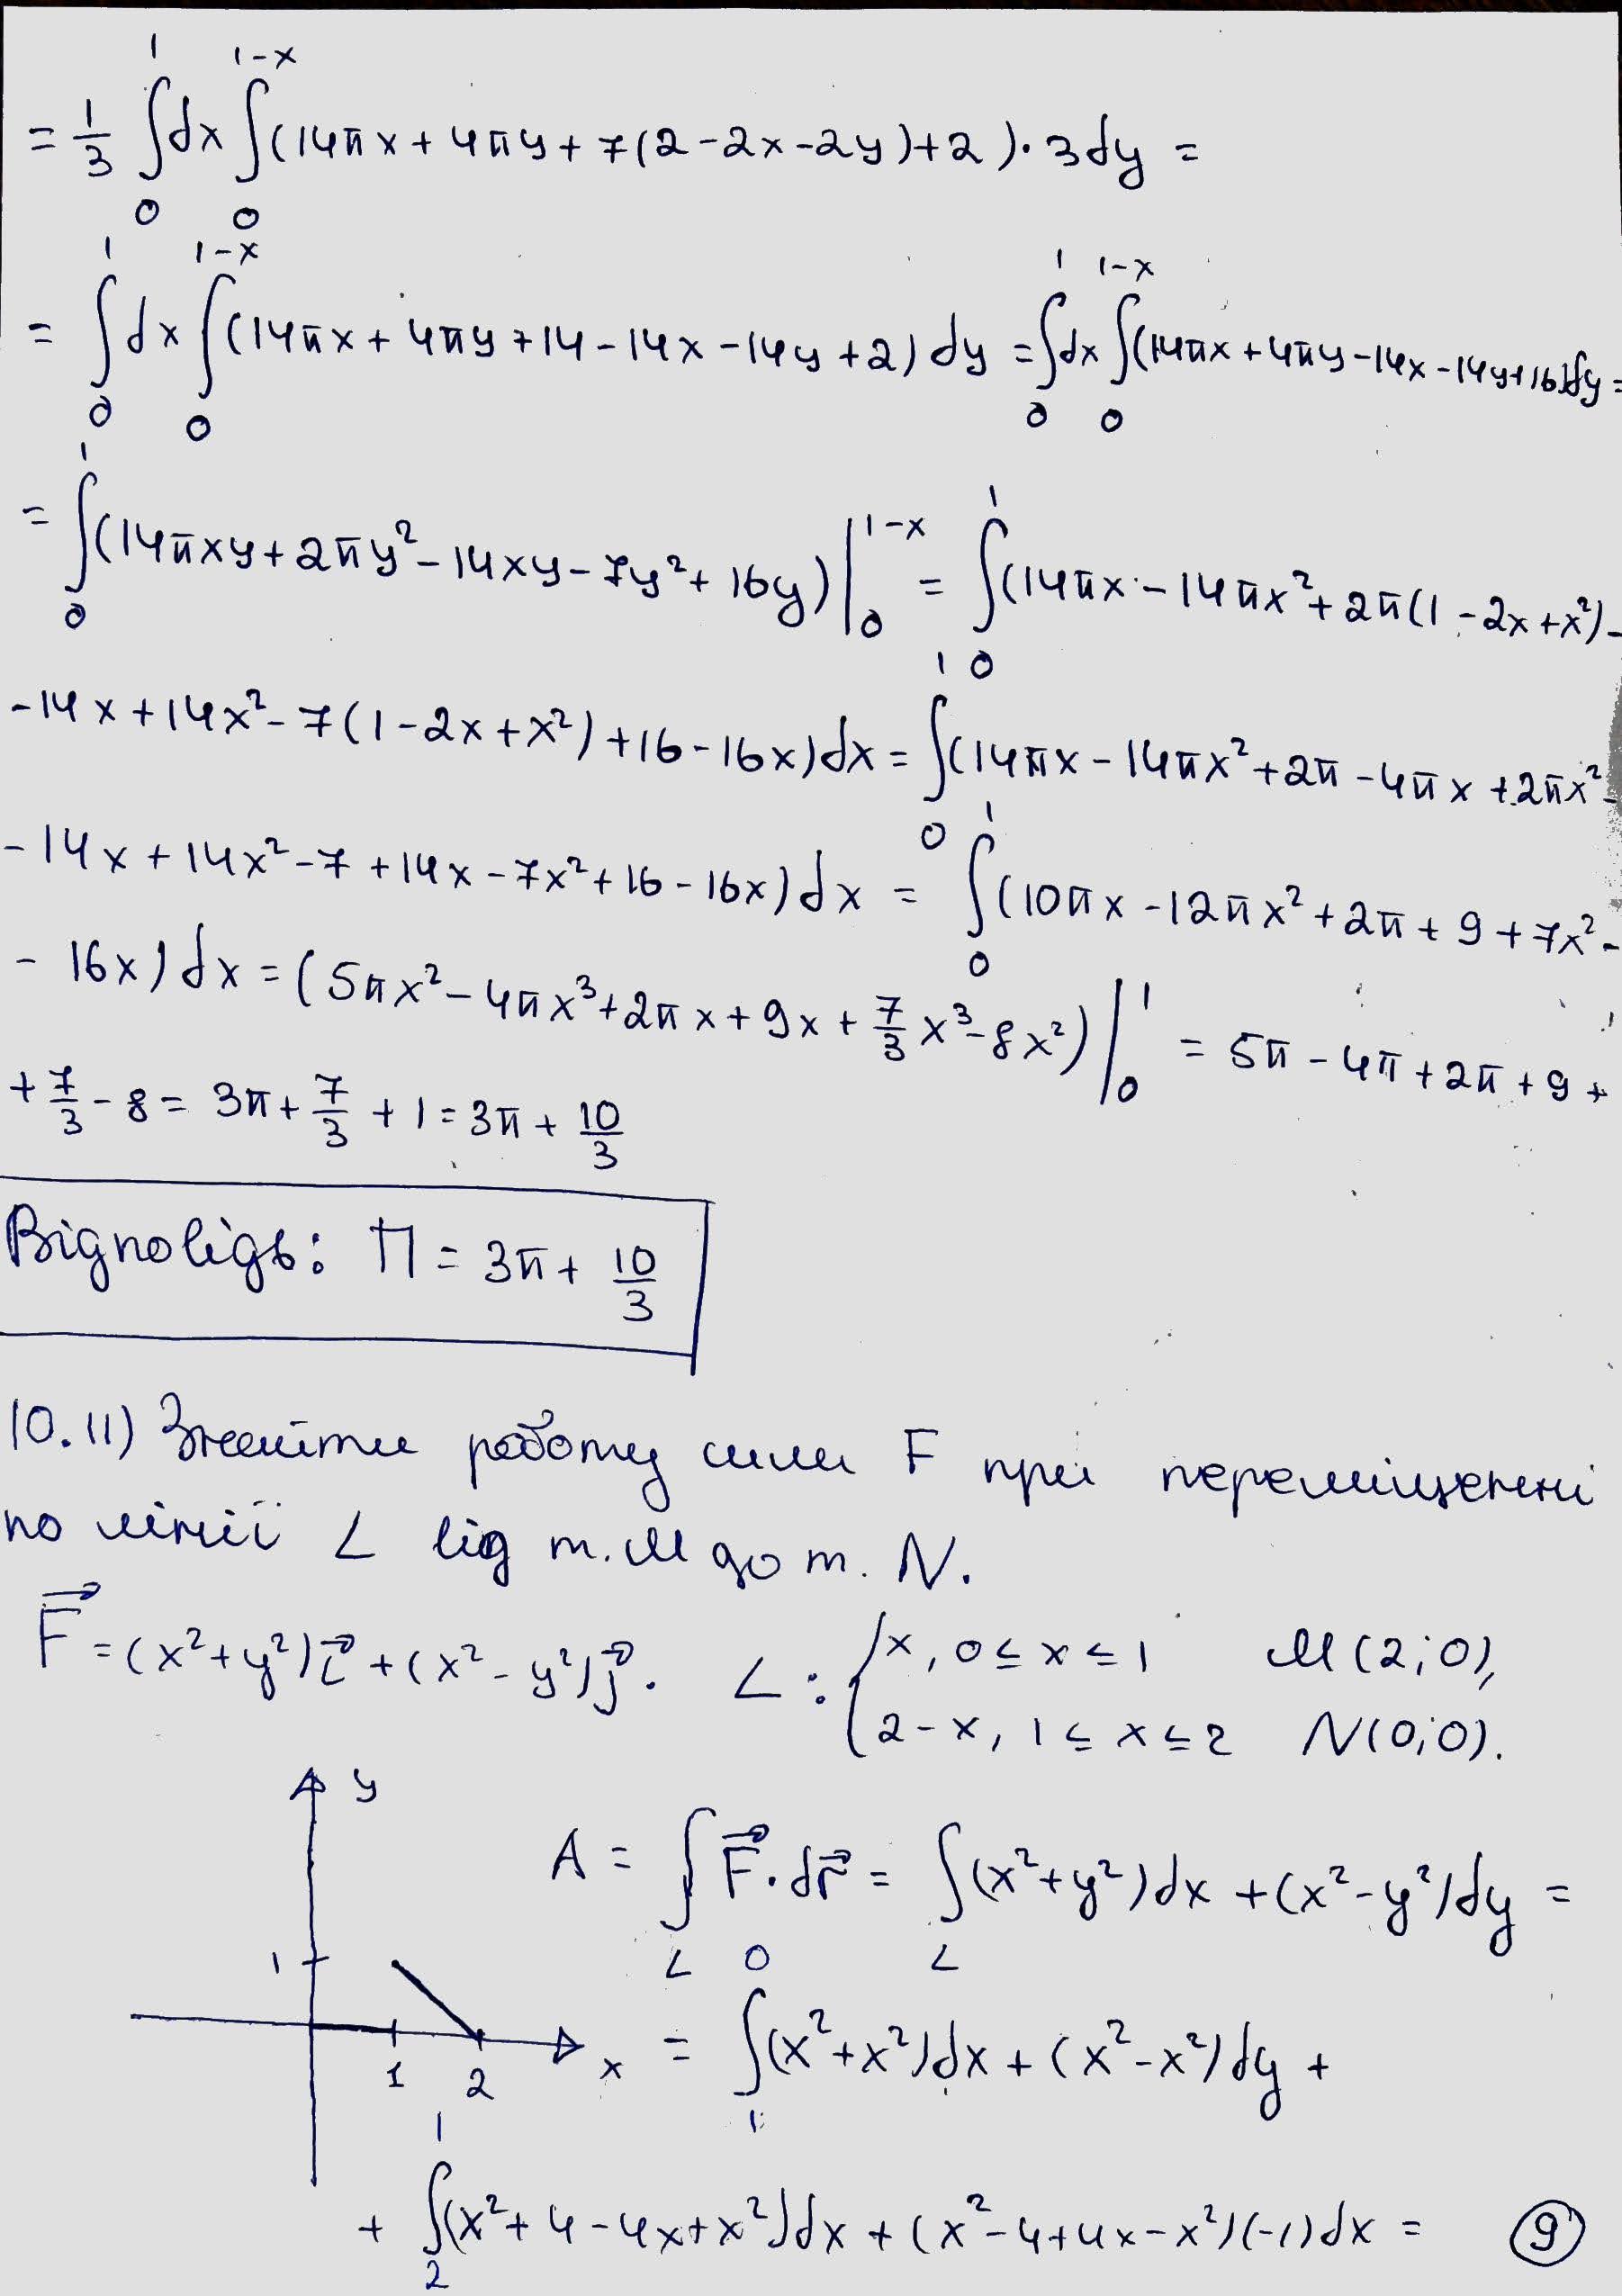 = 1/3 ∫₀¹ dx ∫₀^(1-x) (14πx + 4πy + 7(2-2x-2y)+2)·3dy =
= ∫₀¹ dx ∫₀^(1-x) (14πx + 4πy + 14 - 14x - 14y + 2) dy = ∫₀¹ dx ∫₀^(1-x) (14πx + 4πy - 14x - 14y + 16) dy =
= ∫₀¹ (14πxy + 2πy² - 14xy - 7y² + 16y) |₀^(1-x) = ∫₀¹ (14πx - 14πx² + 2π(1 - 2x + x²) -
- 14x + 14x² - 7(1 - 2x + x²) + 16 - 16x) dx = ∫₀¹ (14πx - 14πx² + 2π - 4πx + 2πx² -
- 14x + 14x² - 7 + 14x - 7x² + 16 - 16x) dx = ∫₀¹ (10πx - 12πx² + 2π + 9 + 7x² -
- 16x) dx = (5πx² - 4πx³ + 2πx + 9x + 7/3 x³ - 8x²) |₀¹ = 5π - 4π + 2π + 9 +
+ 7/3 - 8 = 3π + 7/3 + 1 = 3π + 10/3
Відповідь: П = 3π + 10/3
10.11) Знайти роботу сили F при переміщенні
по лінії L від т. M до т. N.
F⃗ = (x² + y²)i⃗ + (x² - y²)j⃗. L: { x, 0 ≤ x ≤ 1 M(2;0),
2 - x, 1 ≤ x ≤ 2 N(0;0).
y
A = ∫_L F⃗·dr⃗ = ∫_L (x² + y²)dx + (x² - y²)dy =
1
= ∫₁⁰ (x² + x²)dx + (x² - x²)dy +
1 2 x
+ ∫₂¹ (x² + 4 - 4x + x²)dx + (x² - 4 + 4x - x²)(-1)dx =
9